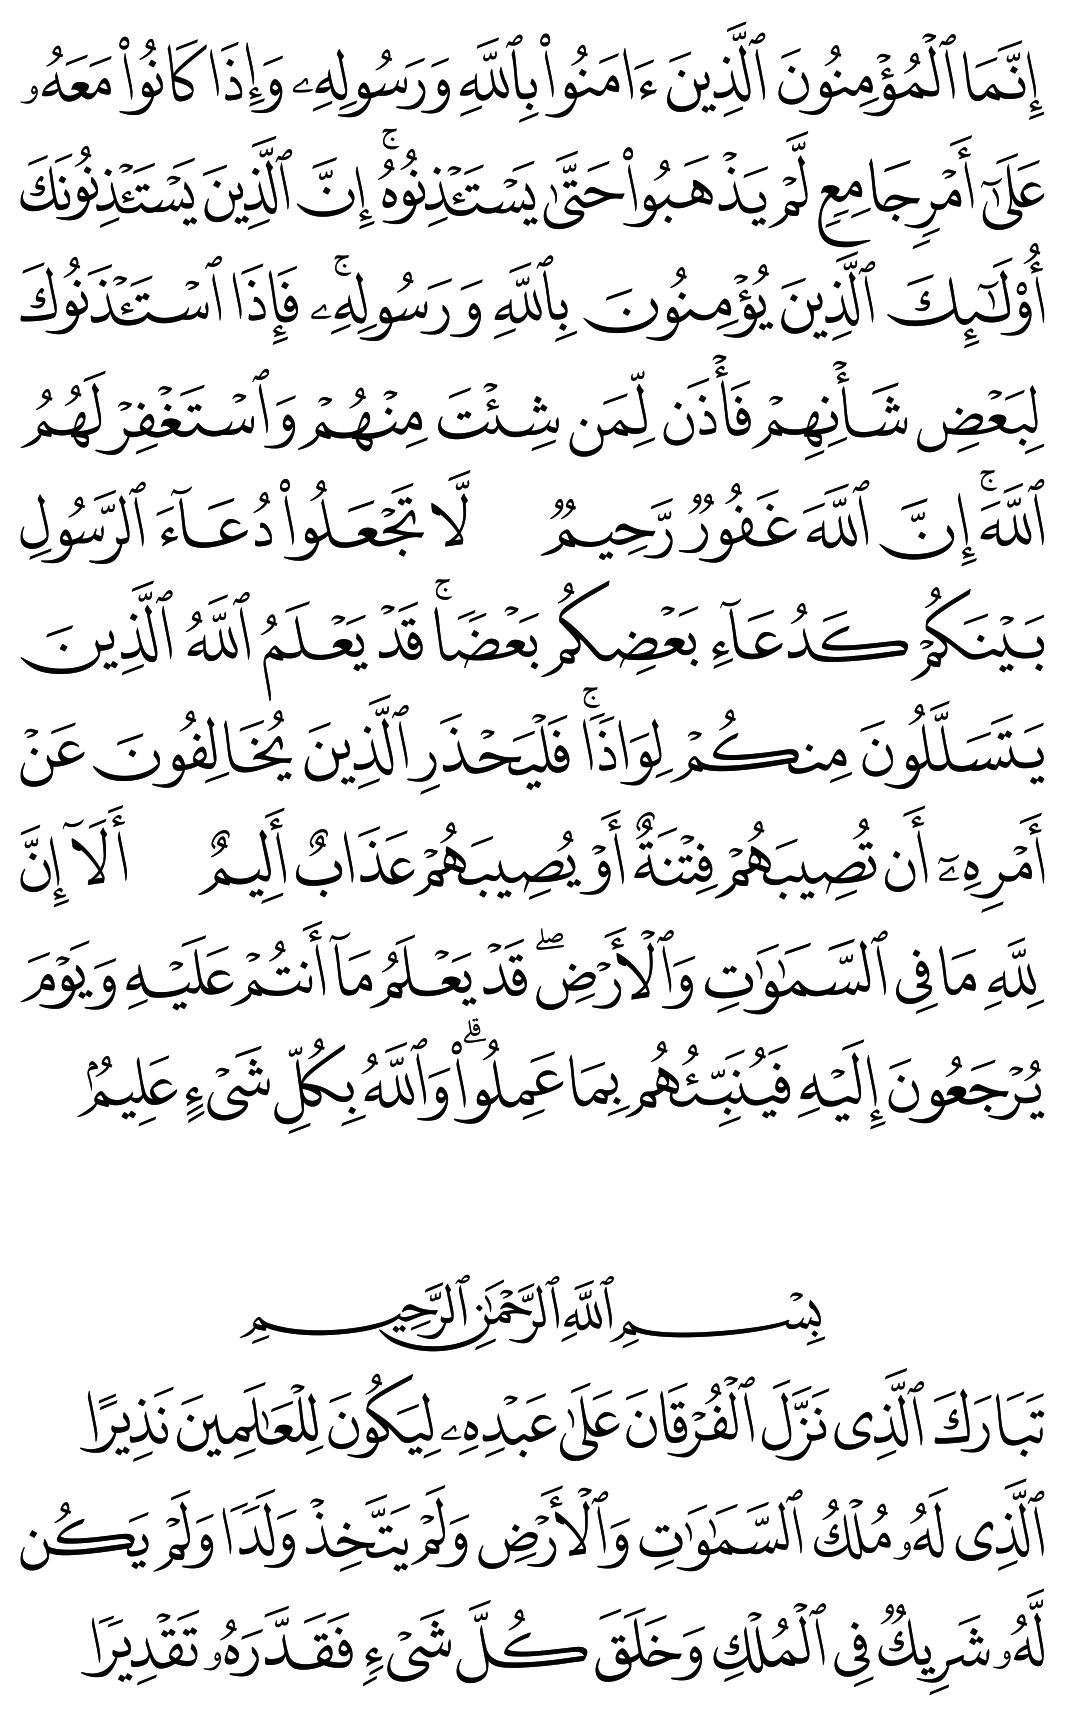 إِنَّمَا ٱلْمُؤْمِنُونَ ٱلَّذِينَ ءَامَنُوا۟ بِٱللَّهِ وَرَسُولِهِۦ وَإِذَا كَانُوا۟ مَعَهُۥ
عَلَىٰٓ أَمْرٍ جَامِعٍ لَّمْ يَذْهَبُوا۟ حَتَّىٰ يَسْتَـْٔذِنُوهُ ۚ إِنَّ ٱلَّذِينَ يَسْتَـْٔذِنُونَكَ
أُو۟لَـٰٓئِكَ ٱلَّذِينَ يُؤْمِنُونَ بِٱللَّهِ وَرَسُولِهِۦ ۚ فَإِذَا ٱسْتَـْٔذَنُوكَ
لِبَعْضِ شَأْنِهِمْ فَأْذَن لِّمَن شِئْتَ مِنْهُمْ وَٱسْتَغْفِرْ لَهُمُ
ٱللَّهَ ۚ إِنَّ ٱللَّهَ غَفُورٌ رَّحِيمٌ لَّا تَجْعَلُوا۟ دُعَآءَ ٱلرَّسُولِ
بَيْنَكُمْ كَدُعَآءِ بَعْضِكُم بَعْضًا ۚ قَدْ يَعْلَمُ ٱللَّهُ ٱلَّذِينَ
يَتَسَلَّلُونَ مِنكُمْ لِوَاذًا ۚ فَلْيَحْذَرِ ٱلَّذِينَ يُخَالِفُونَ عَنْ
أَمْرِهِۦٓ أَن تُصِيبَهُمْ فِتْنَةٌ أَوْ يُصِيبَهُمْ عَذَابٌ أَلِيمٌ أَلَآ إِنَّ
لِلَّهِ مَا فِى ٱلسَّمَـٰوَٰتِ وَٱلْأَرْضِ ۖ قَدْ يَعْلَمُ مَآ أَنتُمْ عَلَيْهِ وَيَوْمَ
يُرْجَعُونَ إِلَيْهِ فَيُنَبِّئُهُم بِمَا عَمِلُوا۟ ۗ وَٱللَّهُ بِكُلِّ شَىْءٍ عَلِيمٌۢ
بِسْمِ ٱللَّهِ ٱلرَّحْمَـٰنِ ٱلرَّحِيمِ
تَبَارَكَ ٱلَّذِى نَزَّلَ ٱلْفُرْقَانَ عَلَىٰ عَبْدِهِۦ لِيَكُونَ لِلْعَـٰلَمِينَ نَذِيرًا
ٱلَّذِى لَهُۥ مُلْكُ ٱلسَّمَـٰوَٰتِ وَٱلْأَرْضِ وَلَمْ يَتَّخِذْ وَلَدًا وَلَمْ يَكُن
لَّهُۥ شَرِيكٌ فِى ٱلْمُلْكِ وَخَلَقَ كُلَّ شَىْءٍ فَقَدَّرَهُۥ تَقْدِيرًا